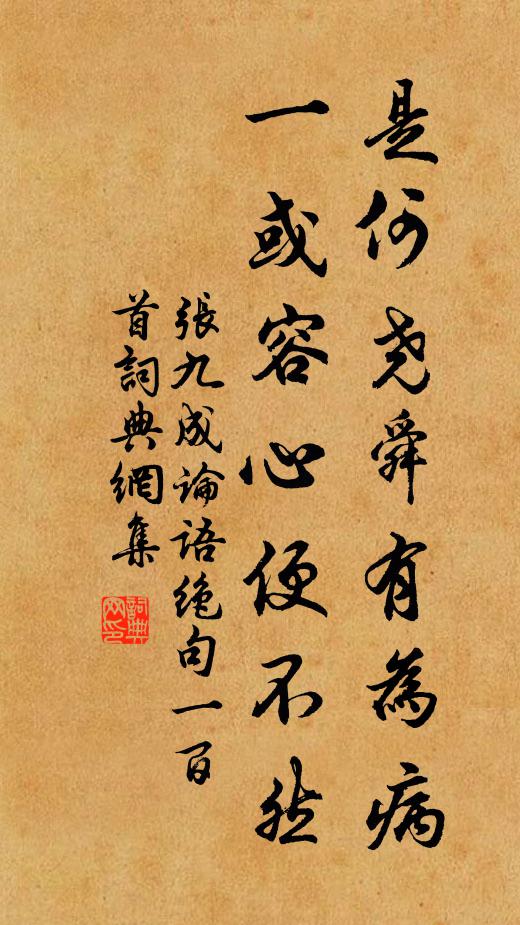 是何尧舜有為病
一或容心便不然
張九成論語絶句一百
首詞典網集
詞典网印